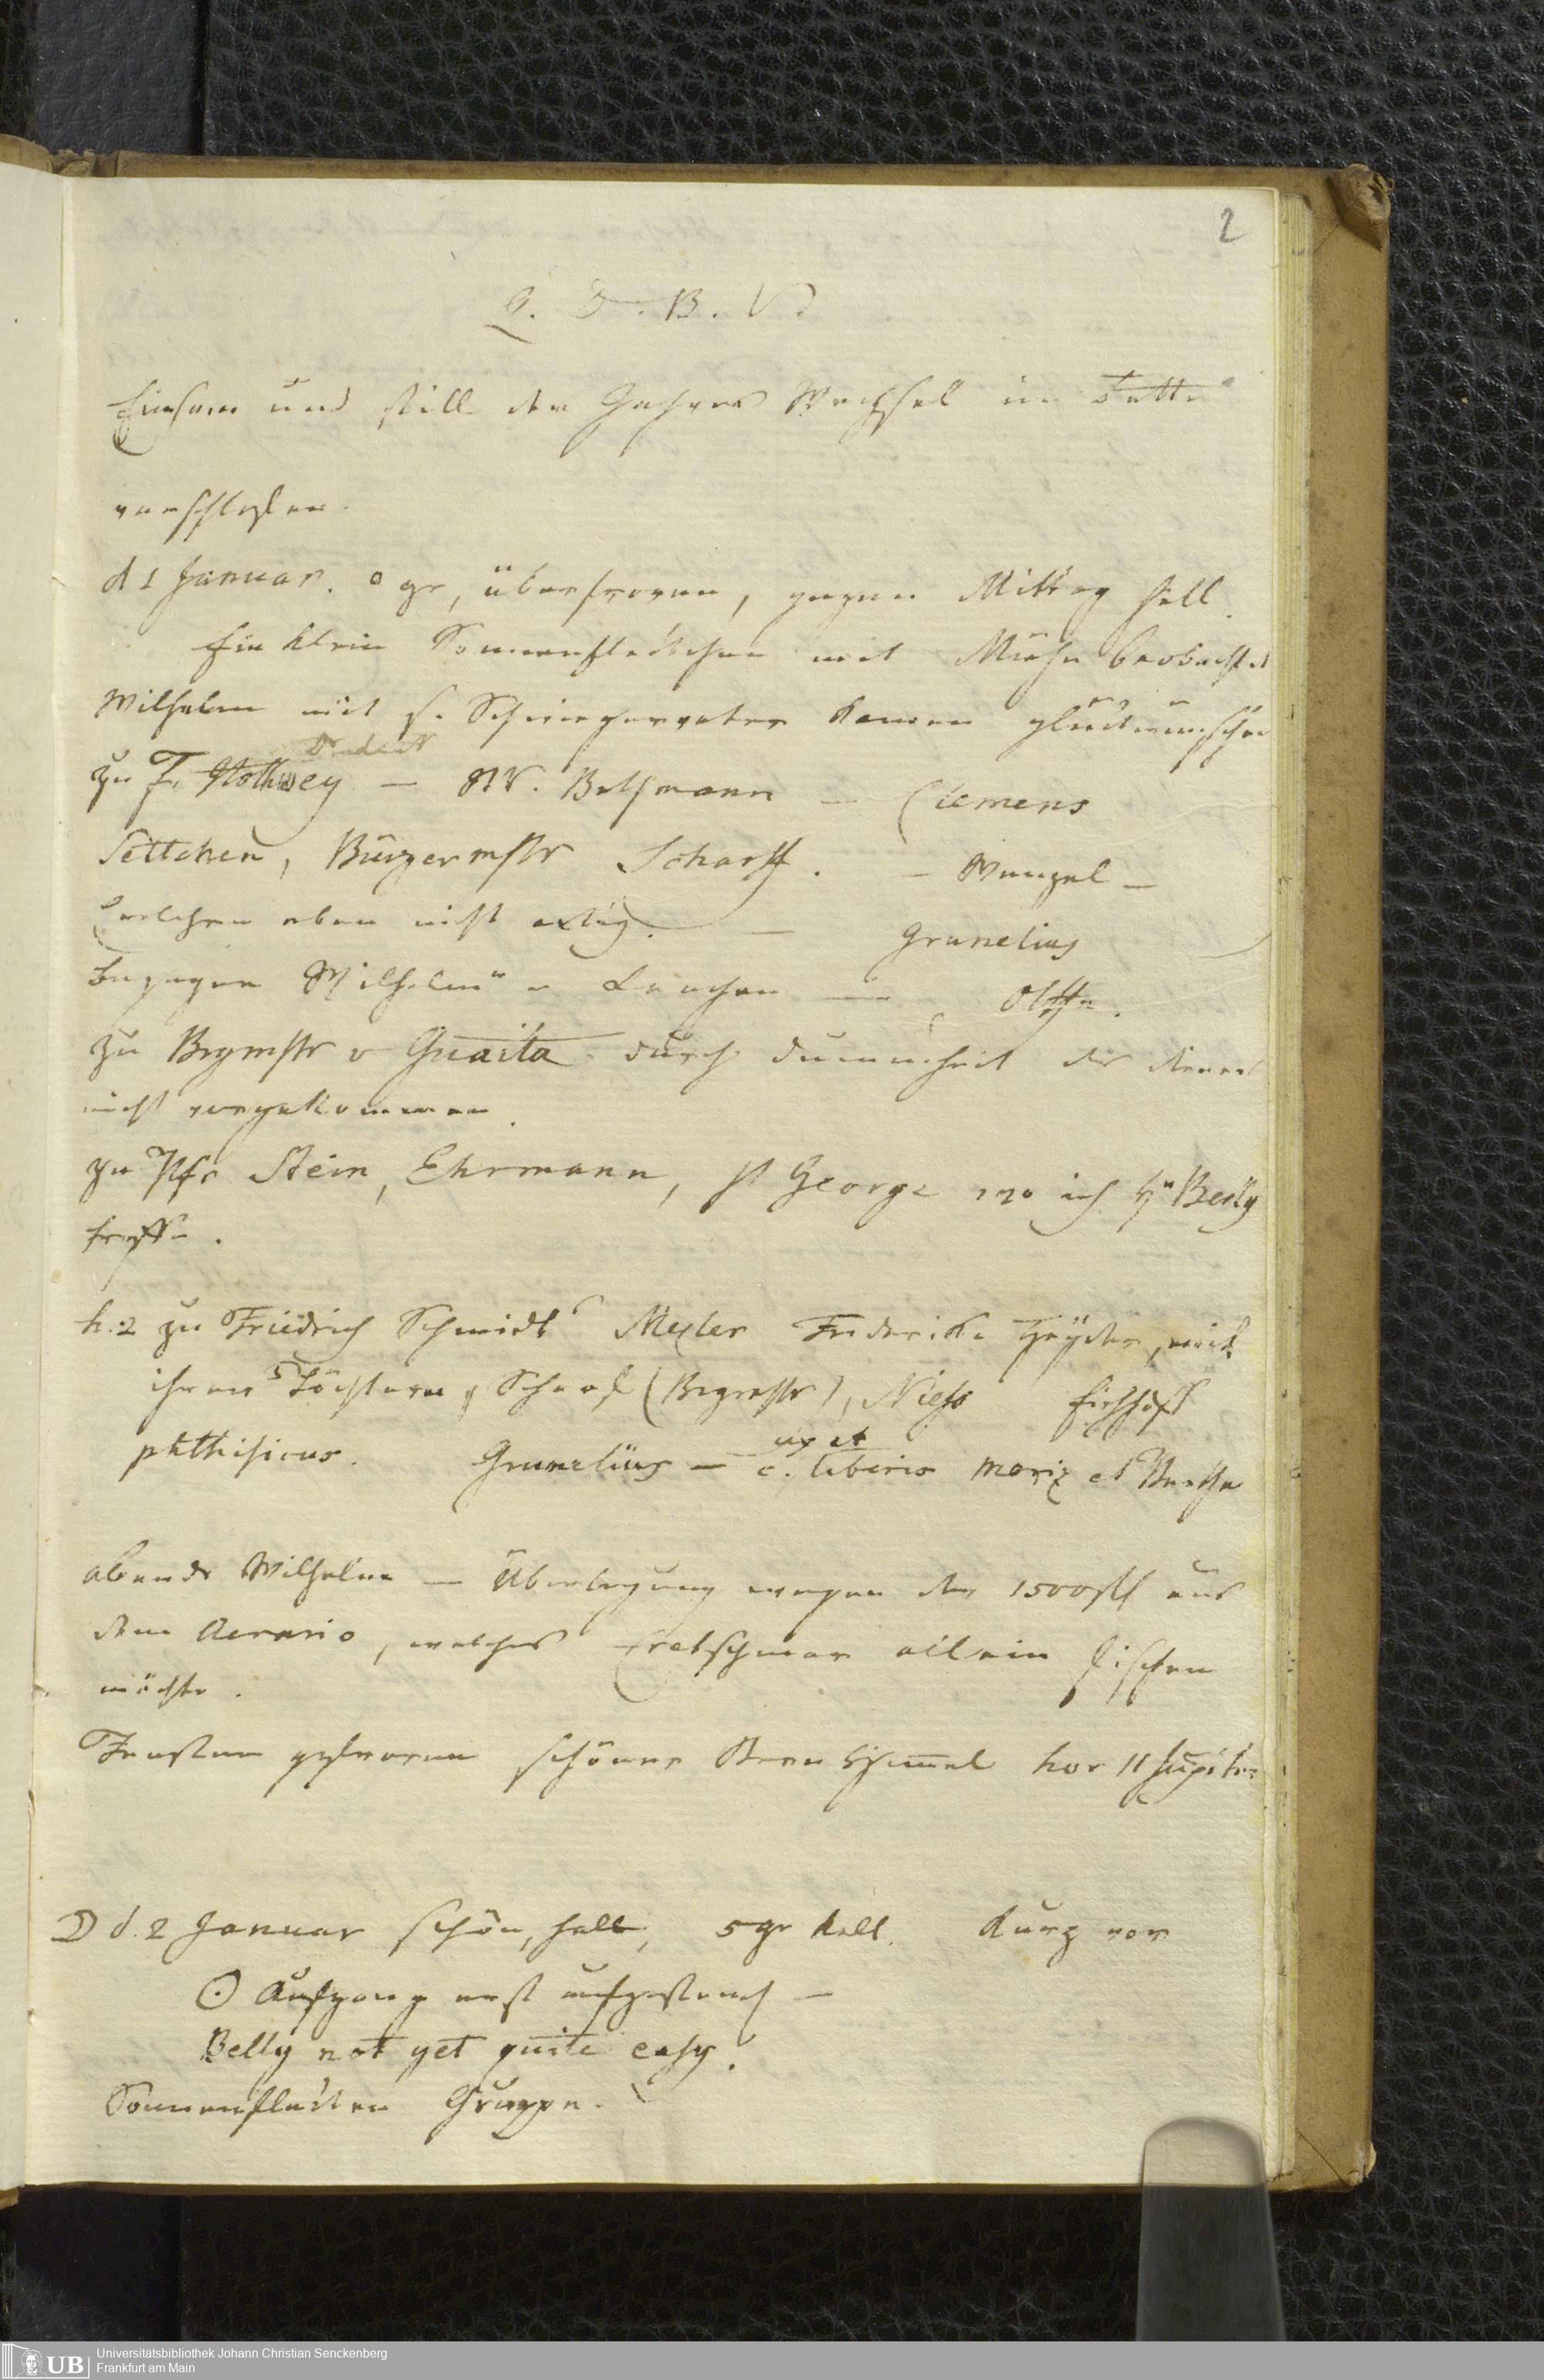 2
Q. D. B. V.
Einsam und still den Jahres Wechsel im Bette
verschlafen.
d 1 Januar. 0 gr, überfroren, gegen Mittag hell.
Ein klein Sonnenfleckchen mit Mühe beobachtet
Wilhelm mit s. Schwiegervater kamen glückwünschen
zu F. — W. Bethmann — Clemens
Settchen, Bürgermstr Scharff. — Wenzel —
eben nicht artig. — Grunelius
begegnen Wilhelm u Lenchen —
zu Brgmstr v Guaita durch Dummheit der
nicht vorgekommen.
zu Pfr Stein, Ehrmann, St George wo ich Hn Beck
treffe.
h. 2 zu Friedrich Schmidt Mezler Friderike Heyder, mit
ihren 5 Töchtern, (Brgmstr), Eichhoff
phthisicus. Grunelius — ux et
c. liberis Moriz et
abends Wilhelm — Überlegung wegen der 1500 fl aus
dem Aerario, welches Cretschmar allein fischen
möchte.
Fenster gefroren schöner Sternhimmel hor 11 Jupiter
☽ d. 2 Januar schön, hell, 5 gr kalt. Kurz vor
☉ Aufgang erst aufgestand —
Belly not yet quite easy.
Sonnenflecken Gruppe.
UB
Universitätsbibliothek Johann Christian Senckenberg
Frankfurt am Main